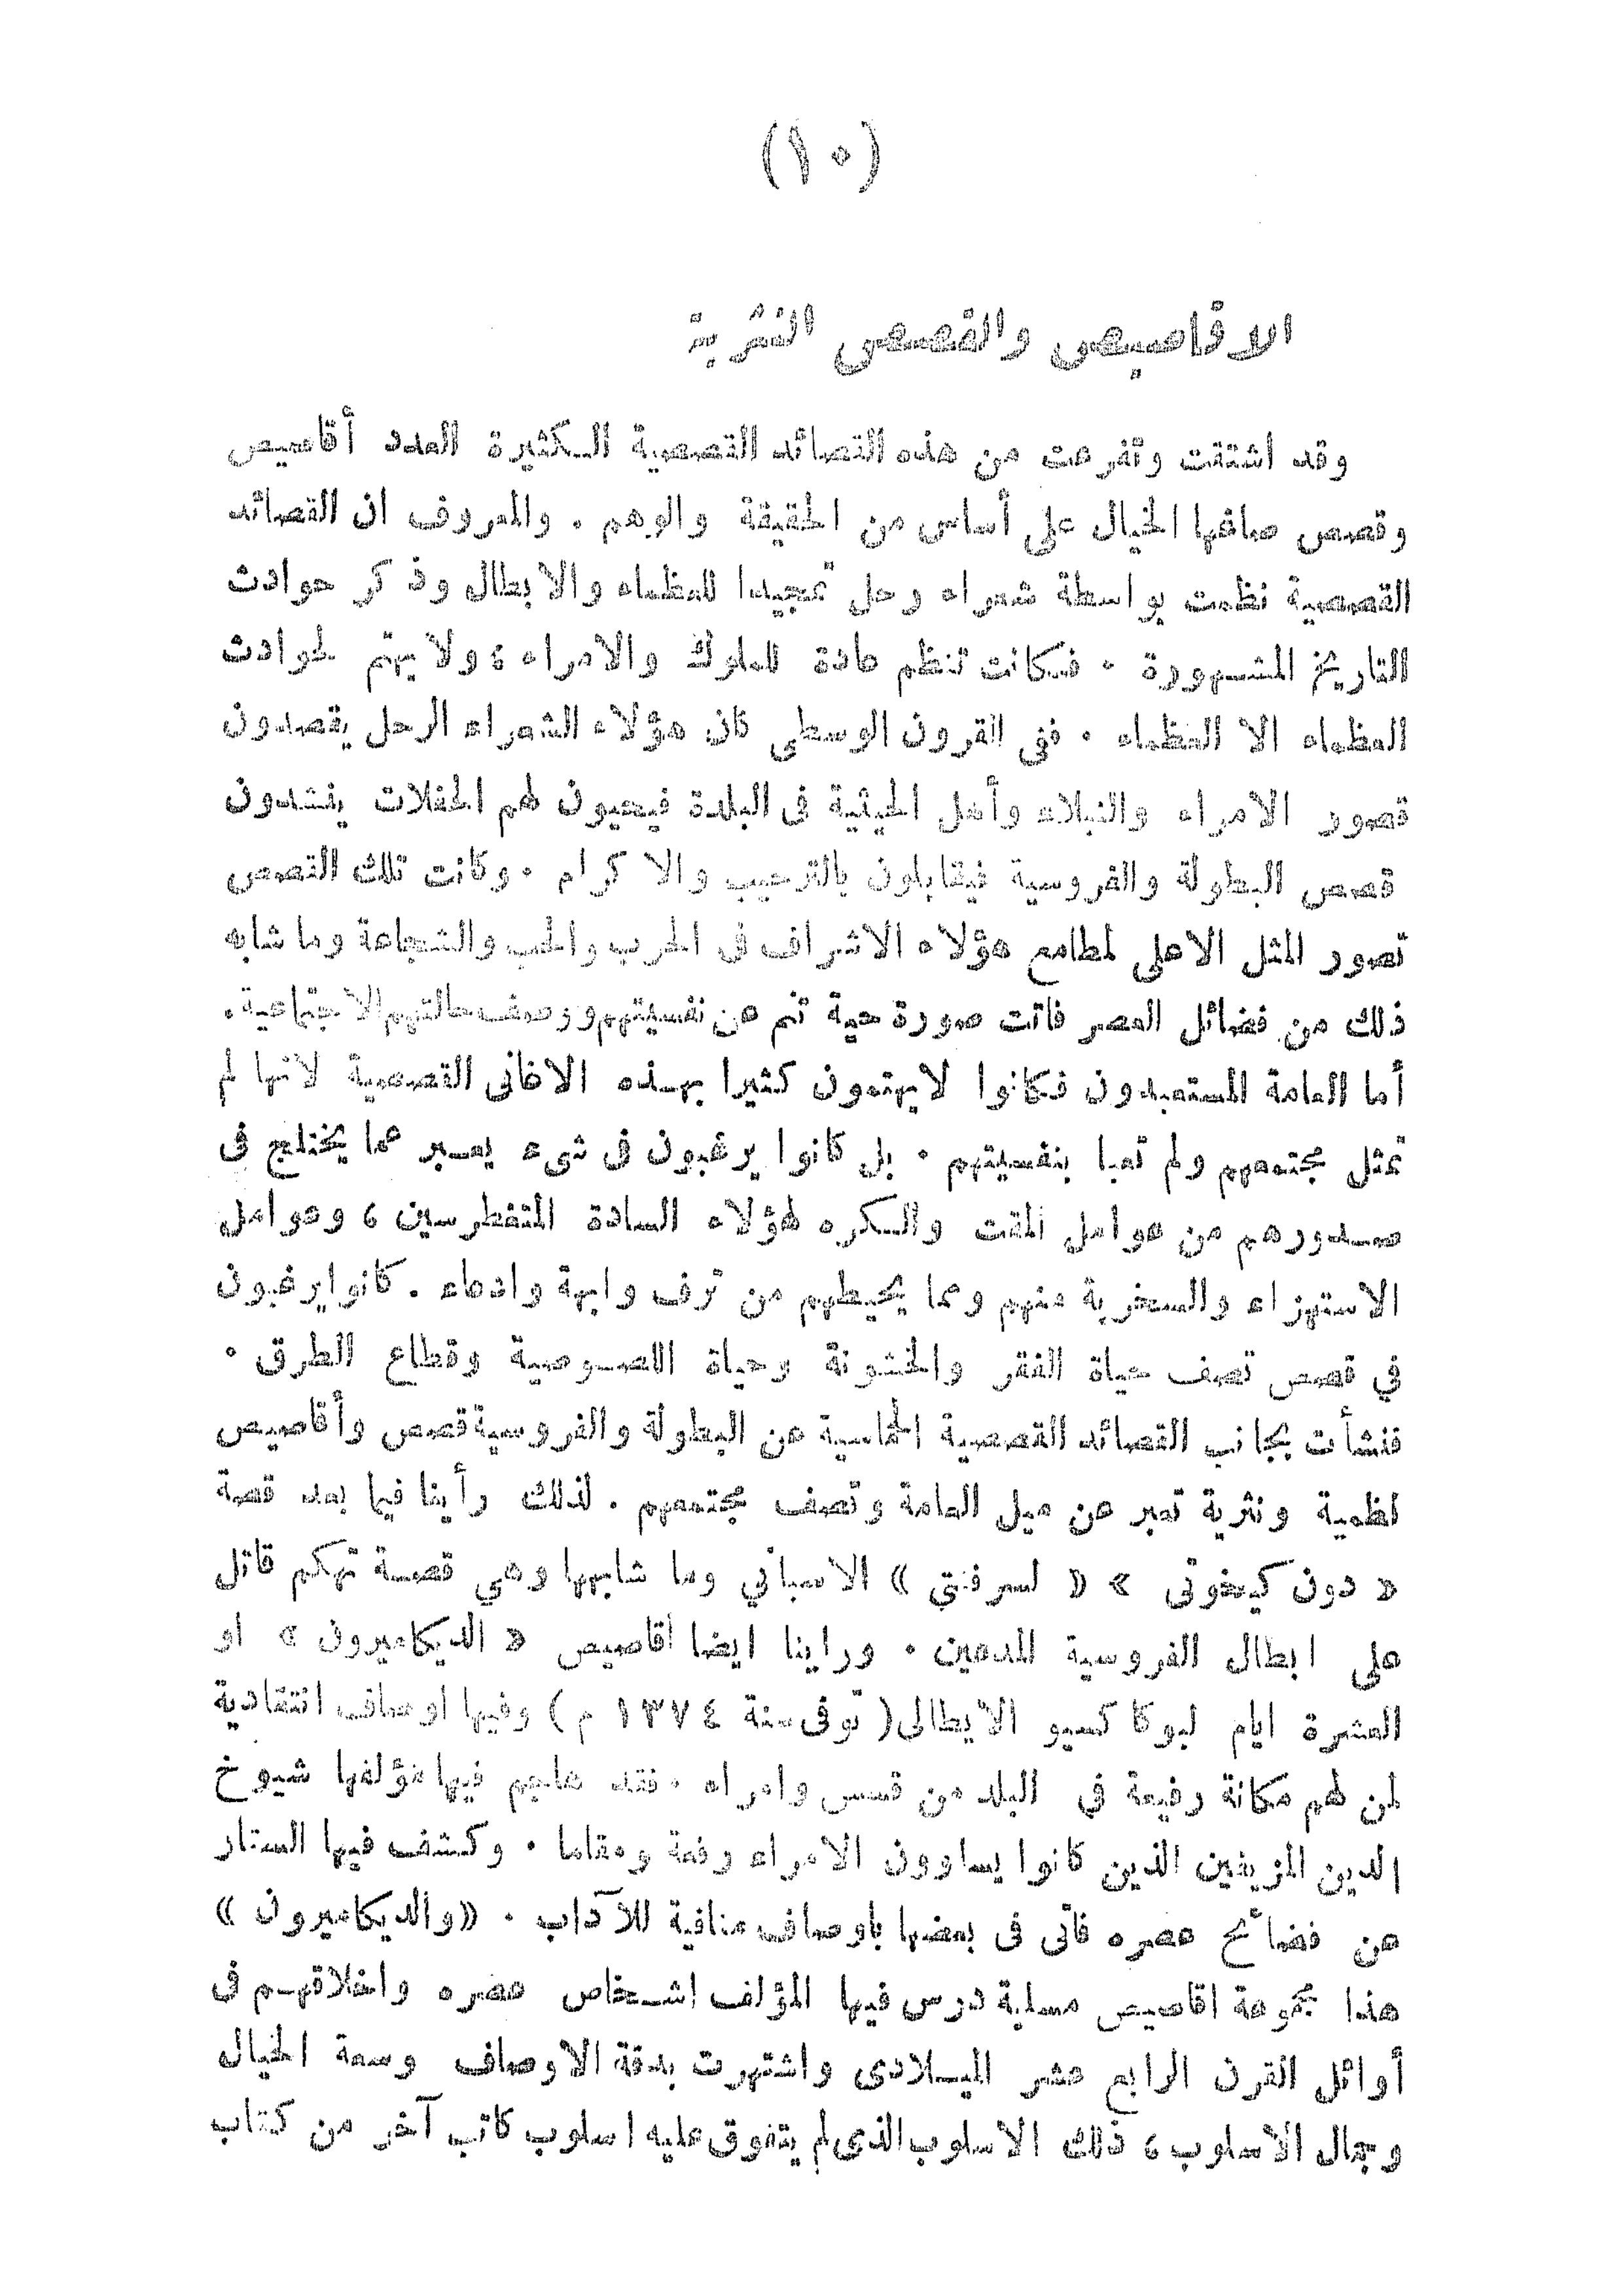 (١٠)
الاقاصيص والقصص النثرية
وقد اشتقت وتفرعت من هذه القصائد القصصية الكثيرة العدد أقاصيص
وقصص صاغها الخيال على أساس من الحقيقة والوهم . والمعروف ان القصائد
القصصية نظمت بواسطة شعراء رحل تمجيدا للعظماء والابطال وذكر حوادث
التاريخ المشهورة . فكانت تنظم عادة للملوك والامراء ، ولا يهتم لحوادث
العظماء الا العظماء . ففى القرون الوسطى كان هؤلاء الشعراء الرحل يقصدون
قصور الامراء والنبلاء وأهل الحيثية فى البلدة فيحيون لهم الحفلات ينشدون
قصص البطولة والفروسية فيقابلون بالترحيب والاكرام . وكانت تلك القصص
تصور المثل الاعلى لمطامع هؤلاء الاشراف فى الحرب والحب والشجاعة وما شابه
ذلك من فضائل العصر فاتت صورة حية تنم عن نفسيتهم ووصف حالتهم الاجتماعية .
أما العامة المستعبدون فكانوا لا يهتمون كثيرا بهذه الاغانى القصصية لانها لم
تمثل مجتمعهم ولم تعبا بنفسيتهم . بل كانوا يرغبون فى شىء يعبر عما يختلج فى
صدورهم من عوامل المقت والكره لهؤلاء السادة المتغطرسين ، وعوامل
الاستهزاء والسخرية منهم وعما يحيطهم من ترف وابهة وادعاء . كانوا يرغبون
في قصص تصف حياة الفقر والخشونة وحياة اللصوصية وقطاع الطرق .
فنشأت بجانب القصائد القصصية الحماسية عن البطولة والفروسية قصص وأقاصيص
نظمية ونثرية تعبر عن ميل العامة وتصف مجتمعهم . لذلك رأينا فيما بعد قصة
« دون كيخوتى » « لسرفنتي » الاسباني وما شابهها وهي قصة تهكم قاتل
على ابطال الفروسية المدعين . وراينا ايضا اقاصيص « الديكاميرون » او
العشرة ايام لبوكاكسيو الايطالى ( توفى سنة ١٣٧٤ م ) وفيها اوصاف انتقادية
لمن لهم مكانة رفيعة في البلد من قسس وامراء . فقد هاجم فيها مؤلفها شيوخ
الدين المزيفين الذين كانوا يساوون الامراء رفعة ومقاما . وكشف فيها الستار
عن فضائح عصره فاتى فى بعضها باوصاف منافية للآداب . «والديكاميرون »
هذا مجموعة اقاصيص مسلية درس فيها المؤلف اشخاص عصره واخلاقهم فى
أوائل القرن الرابع عشر الميلادى واشتهرت بدقة الاوصاف وسعة الخيال
وجمال الاسلوب ، ذلك الاسلوب الذى لم يتفوق عليه اسلوب كاتب آخر من كتاب